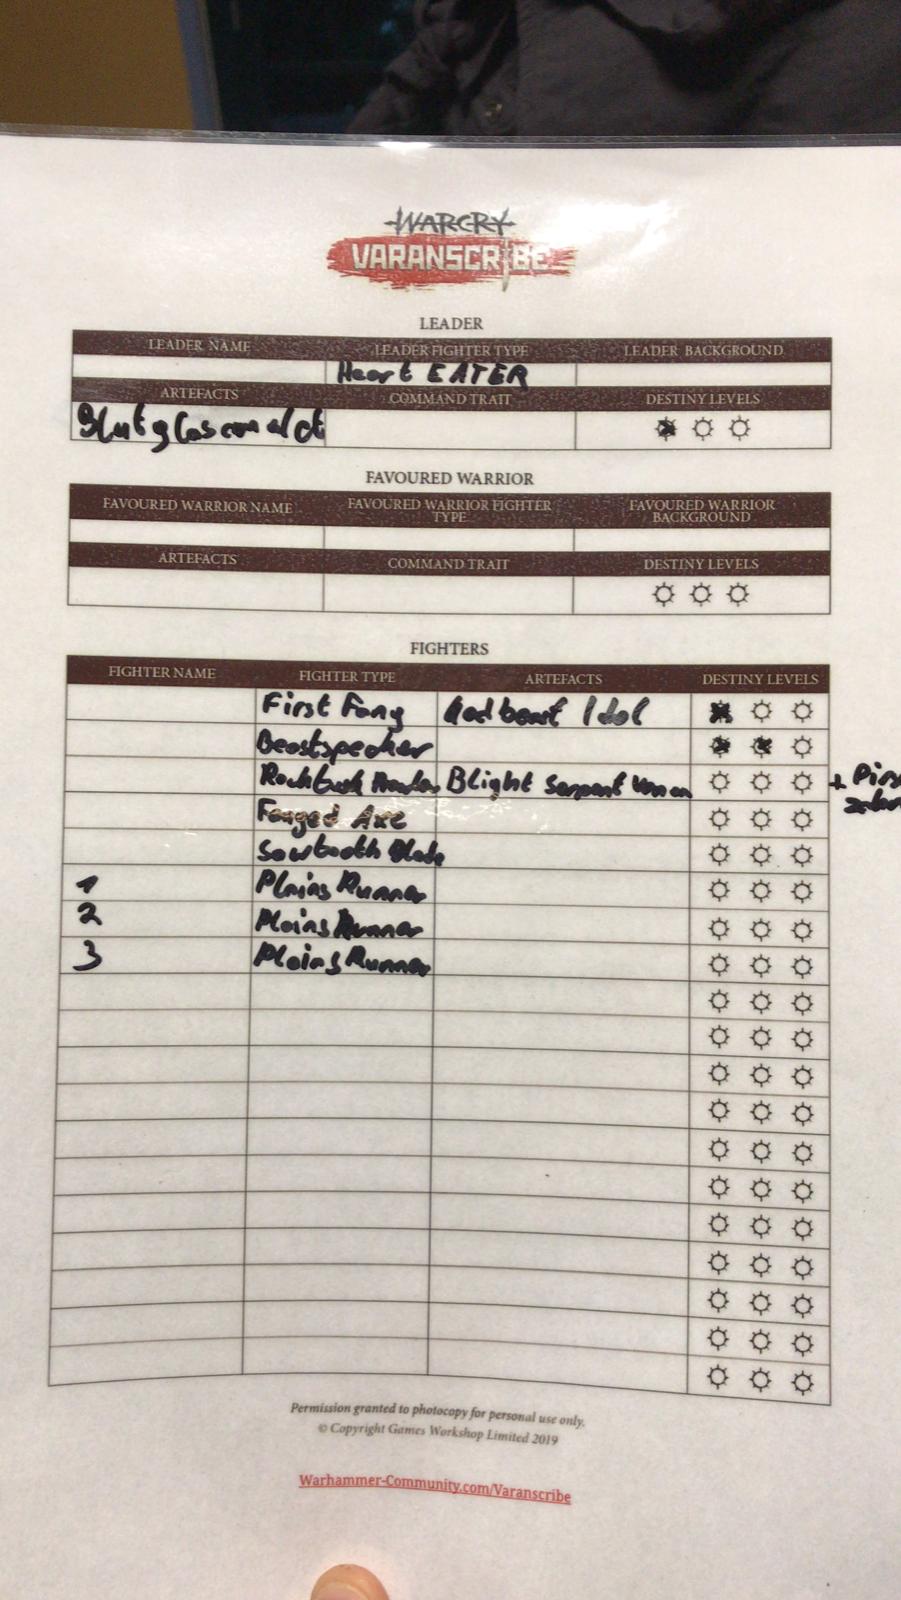 WARCRY
VARANSCRIBE
LEADER
LEADER NAME LEADER FIGHTER TYPE LEADER BACKGROUND
Heart EATER
ARTEFACTS COMMAND TRAIT DESTINY LEVELS
FAVOURED WARRIOR
FAVOURED WARRIOR NAME FAVOURED WARRIOR FIGHTER TYPE FAVOURED WARRIOR BACKGROUND
ARTEFACTS COMMAND TRAIT DESTINY LEVELS
FIGHTERS
FIGHTER NAME FIGHTER TYPE ARTEFACTS DESTINY LEVELS
First Fang Godbeast Idol
Beastspeaker
Rocktusk Blight Serpent Venom
Fanged Axe
Sawtooth Blade
1 Plains Runner
2 Plains Runner
3 Plains Runner
Permission granted to photocopy for personal use only.
© Copyright Games Workshop Limited 2019
Warhammer-Community.com/Varanscribe